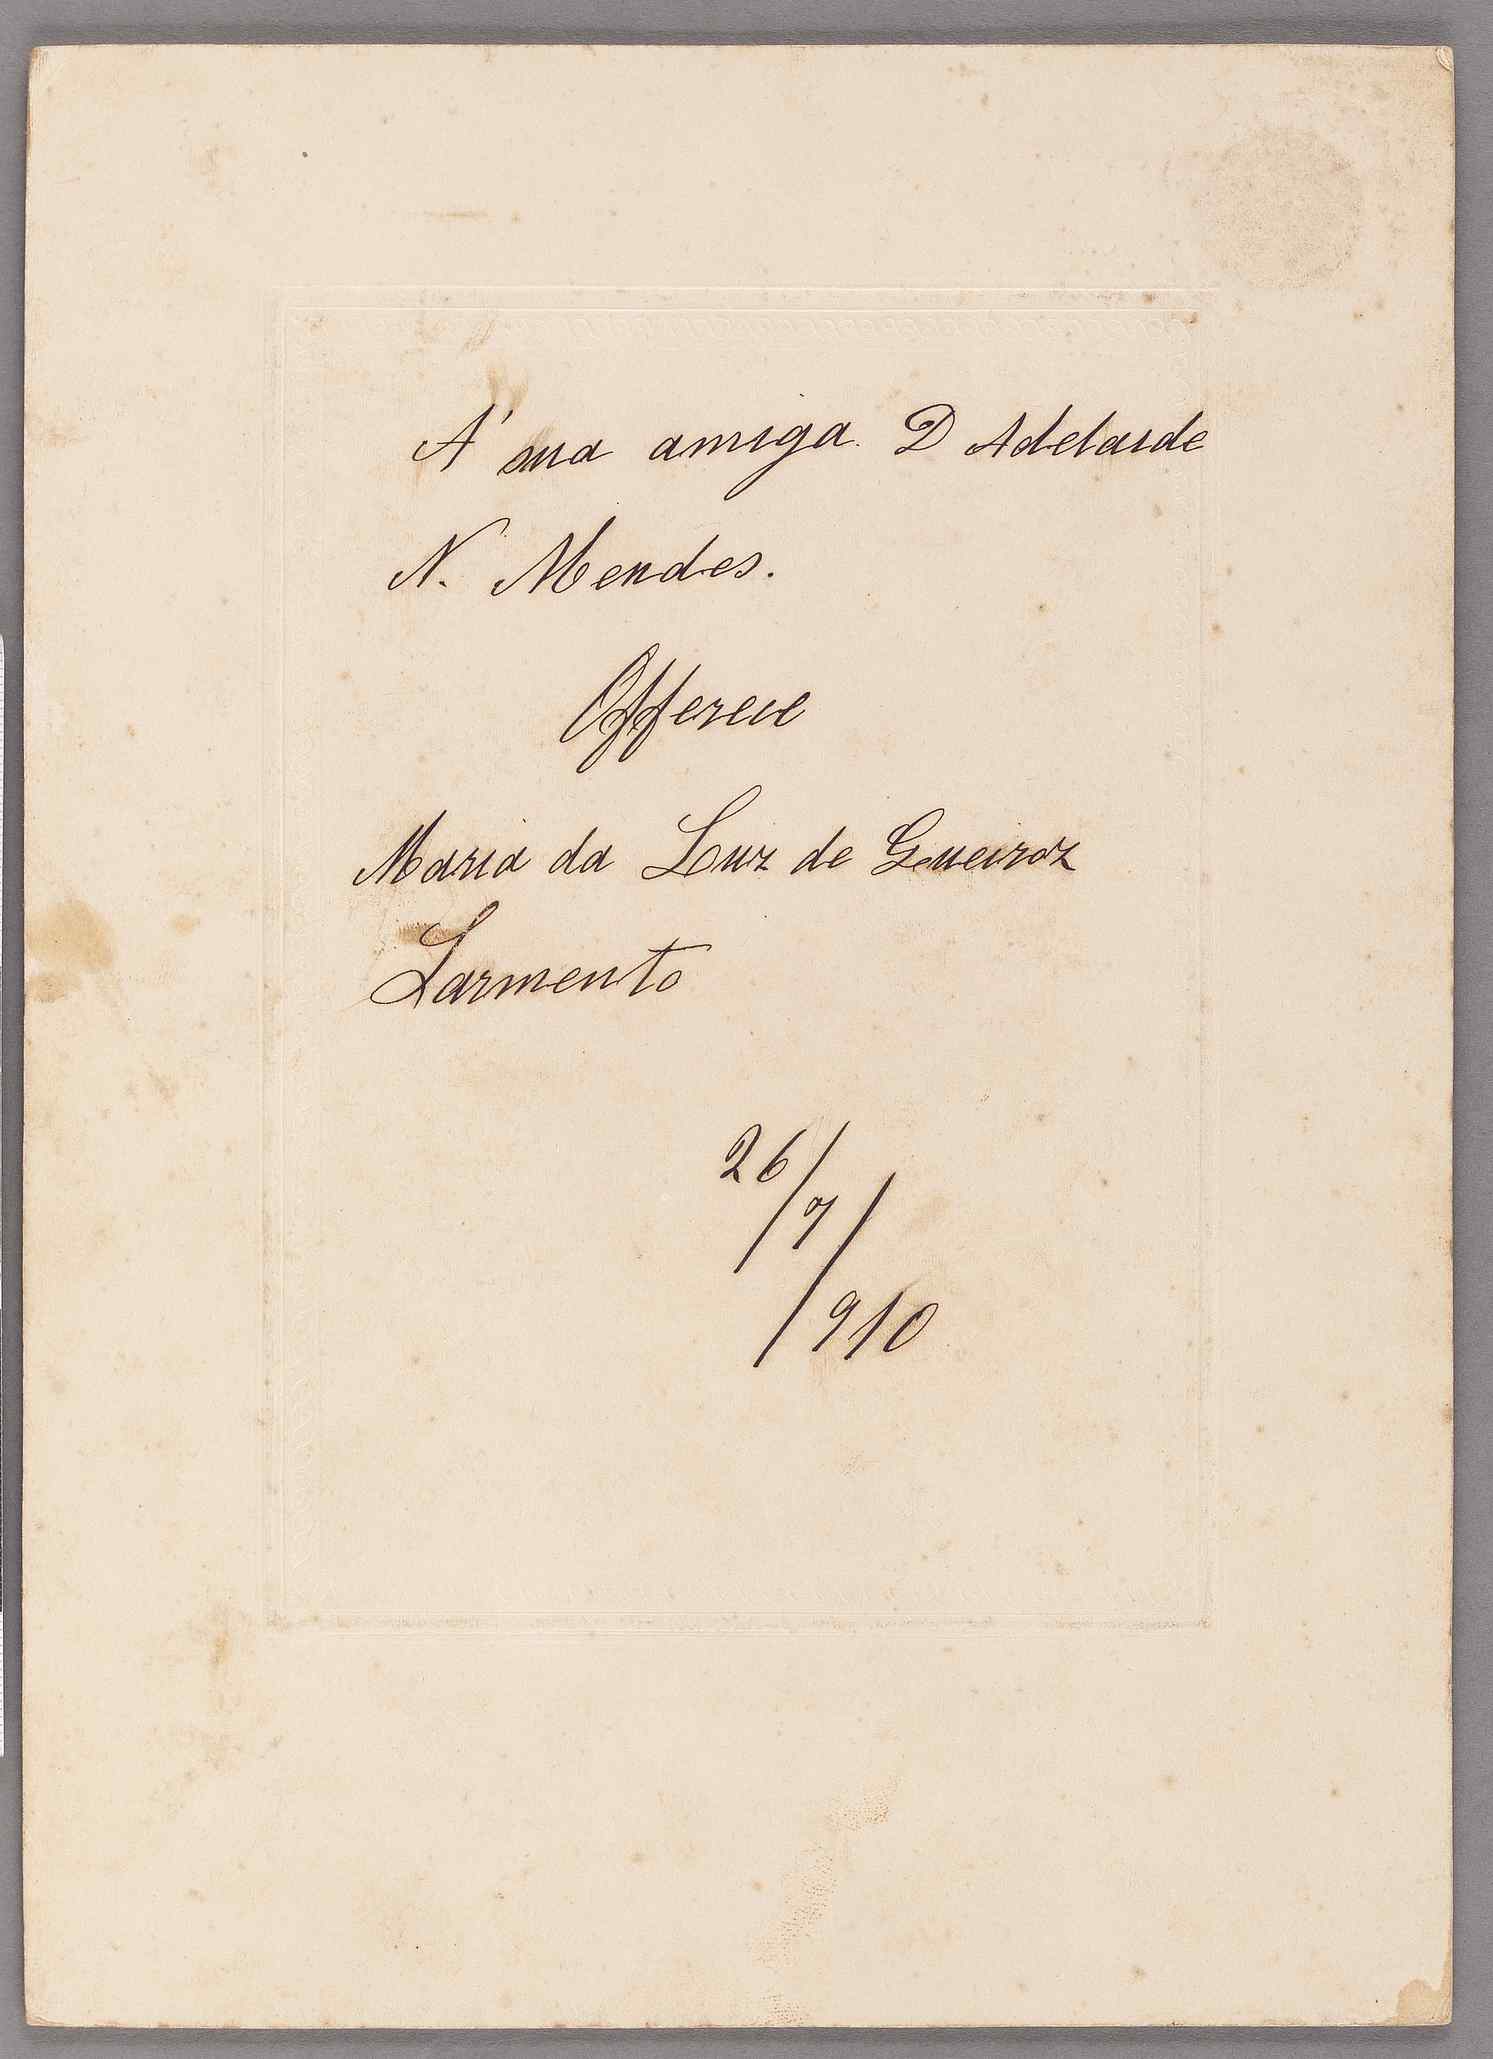 A' sua amiga. D Adelaide
N. Mendes.
Offerece
Maria da Luz de Queiroz
Sarmento
26/7/910